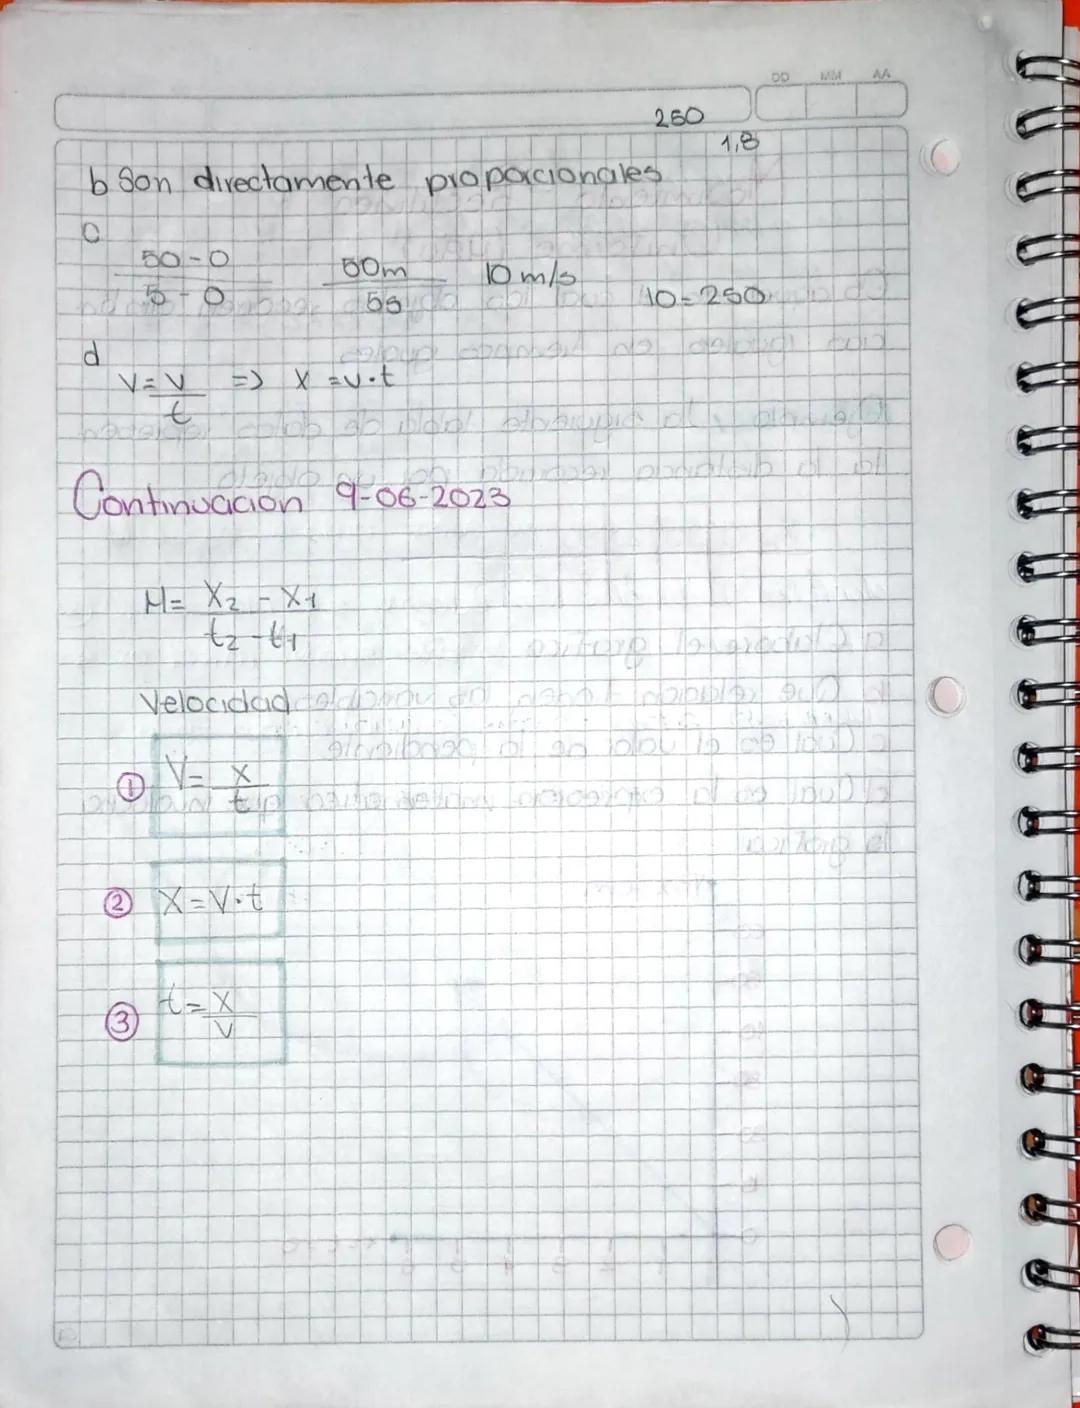 DD MM AA
250
1,8
b Son directamente proporcionales
c
50-0 50m 10 m/s
5-0 5s 10=250
d
V=v => X=v·t
t
Continuacion 9-06-2023
M= X2-X1
t2-t1
Velocidad
① V= x
t
② X=V·t
③ t=x
v